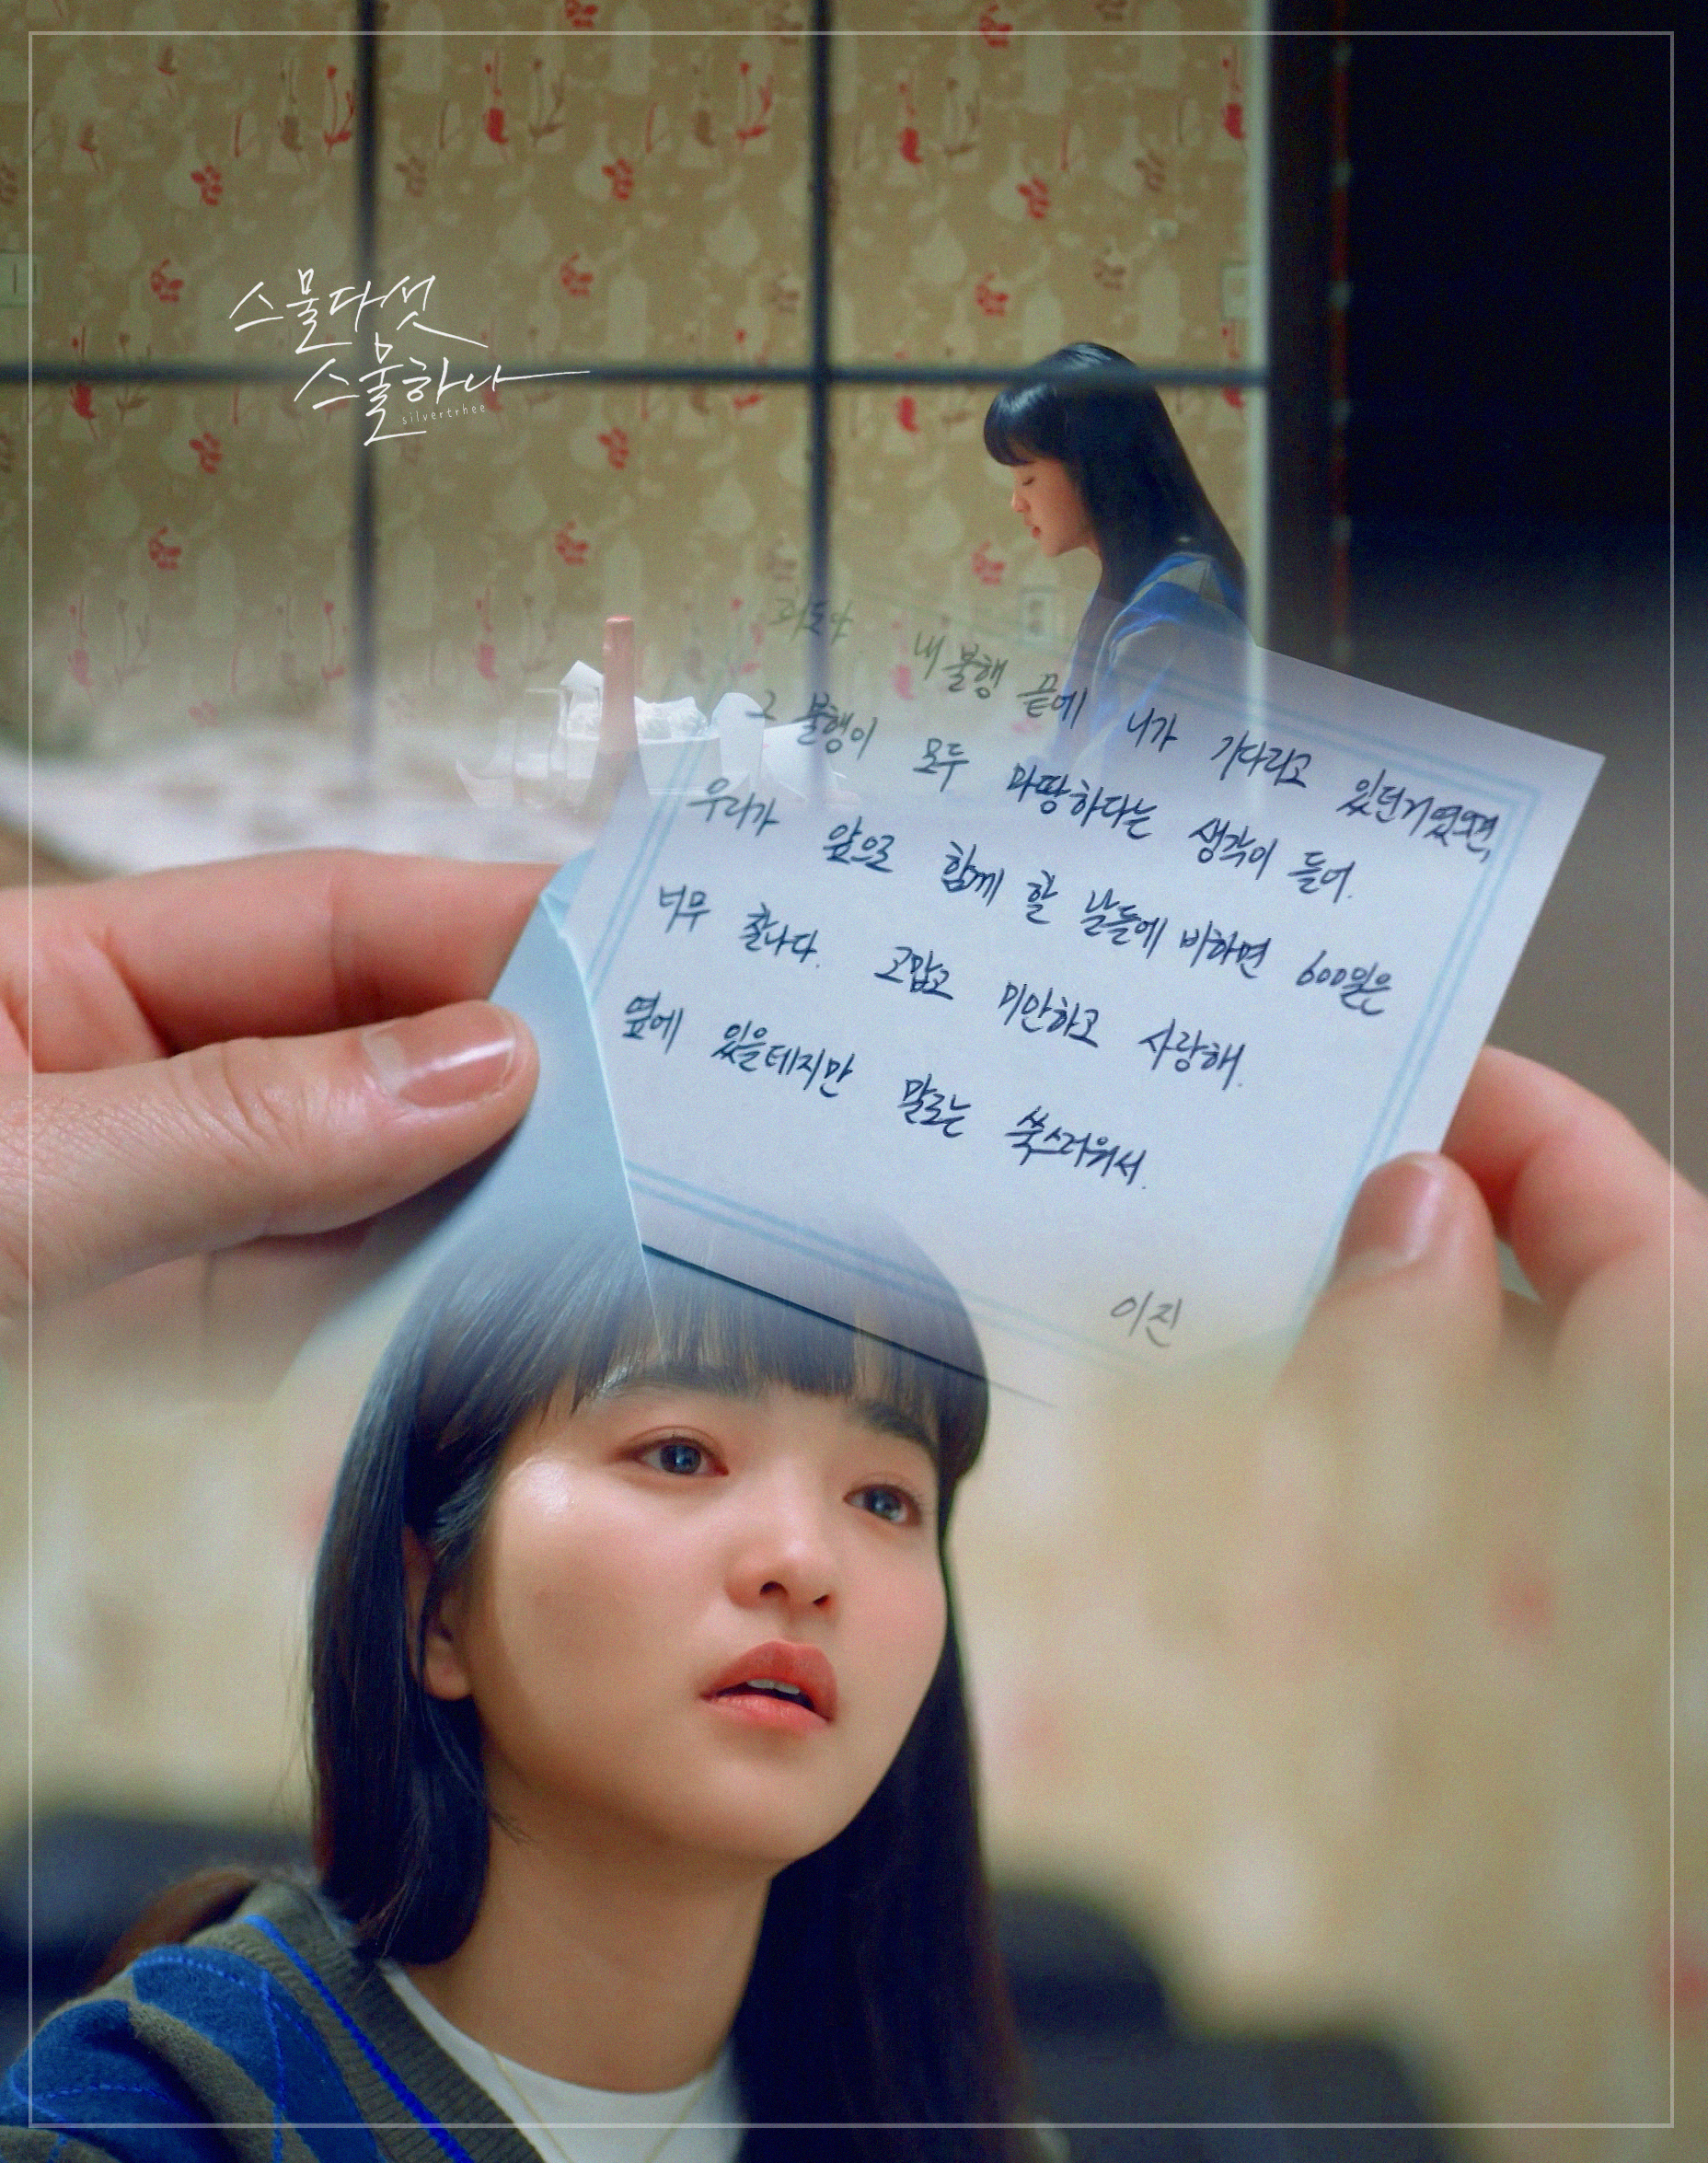 스물다섯
스물하나
silvertrhee
희도야
내 불행 끝에 니가 기다리고 있던거였으면,
그 불행이 모두 마땅하다는 생각이 들어.
우리가 앞으로 함께 할 날들에 비하면 600일은
너무 찰나다. 고맙고 미안하고 사랑해.
옆에 있을테지만 말로는 쑥스러워서.
이진